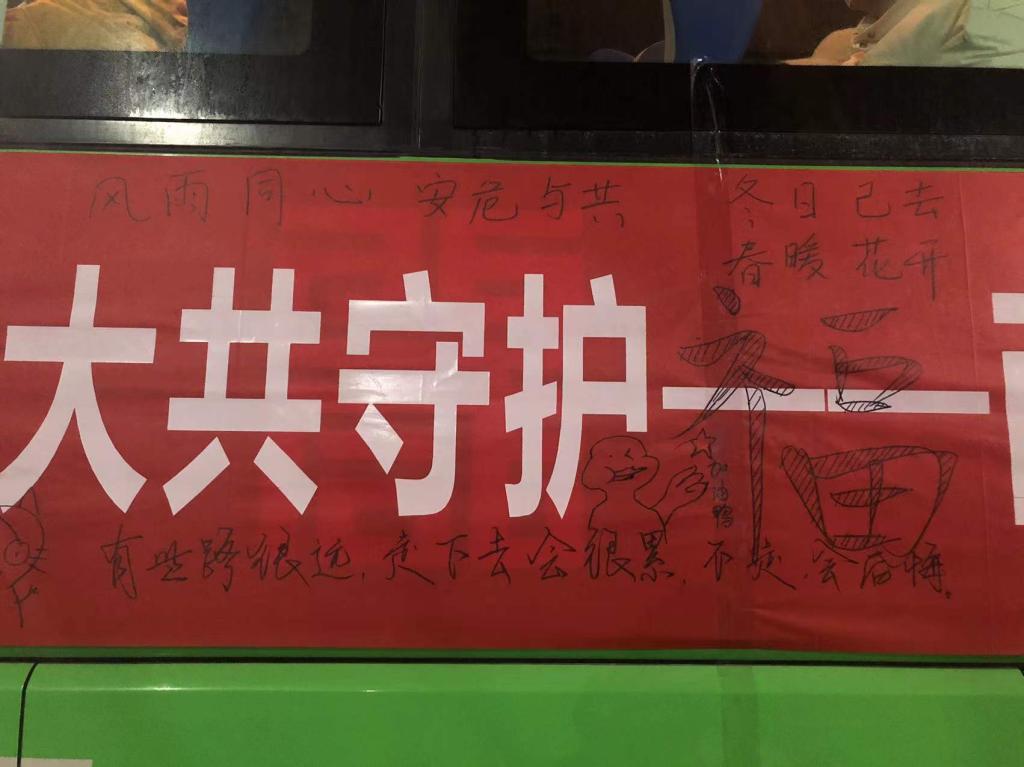 风雨同心 安危与共
冬日已去
春暖花开
大共守护——
福
加油鸭
有些路很远,走下去会很累,不走,会后悔。